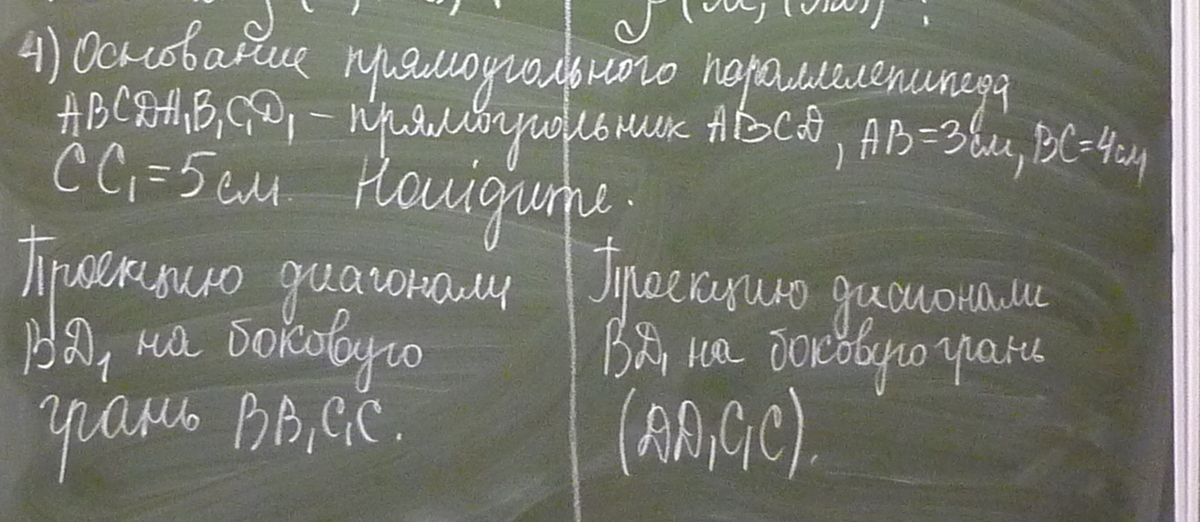 4) Основание прямоугольного параллелепипеда
ABCDA₁B₁C₁D₁ – прямоугольник ABCD, AB=3см, BC=4см
CC₁=5см. Найдите.
Проекцию диагонали
BD₁ на боковую
грань BB₁C₁C.
Проекцию диагонали
BD₁ на боковую грань
(DD₁C₁C).